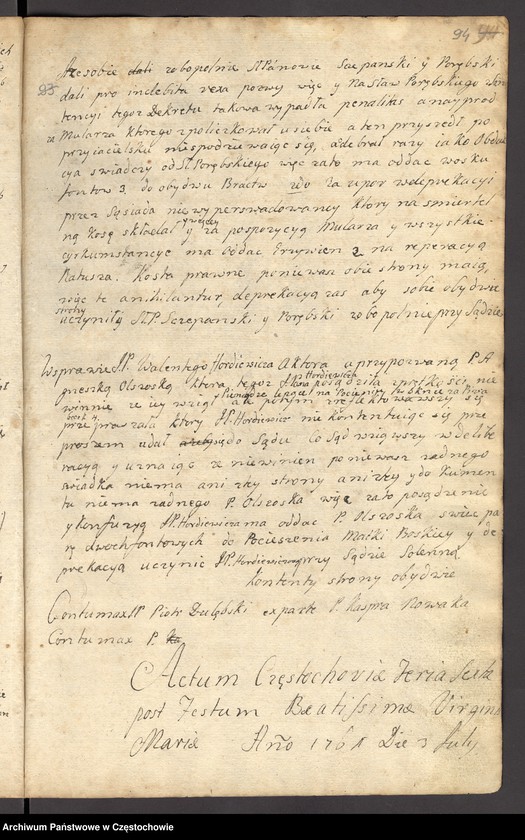 94
że sobie dali robopolnie SłPánowie Szepanski y Porębski
dali pro indebita vexa pozwy więc y na Sław Porębskiego
tencyi tegoz Dekretu takowa wypadła penalitas a nayprod
za Mularza ktorego zpoliczkował u siebie a ten przyszedł po
przyiacielsku niespodziewaiąc się, odebrał razy iako Obduk
cya swiadczy od SłPorębskiego więc zato ma oddac wosku
funtow 3 do obydwu Bractw za upor w deprekacyi
przez Sąsiada niewyperswadowaney ktory na smiertel
ną kosę składał y za pospozycyą Mularza y wszystkie
cyrkumstancye ma oddac Grzywien 2 na reperacyą
Ratusza. Koszta prawne poniewasz obie strony maią,
więc te anihilantur, deprekacyą zas aby sobie obydwie
strony
uczyniły Sł.P. Szczepanski y Porębski robopolnie przy Sądzie
W sprawie Sł.P. Walentego Hordiewicza Aktora a przypozwaną P. A
gnieszką Olszoską ktora tegoz Pana posądziła
winnie ze iey wziął a potym zreflektowawszy się
przepraszała ktory Sł.P. Hordiewicz nie kontentuiąc się prze
proszem udał do Sądu. Co Sąd wziąwszy w Delibe
racyą y uznaiąc ze niewinien poniewasz zadnego
swiadka niema ani zky strony ani zky do kumen
tu niema zadnego P. Olszoska więc zato posądzenie
y konfuzyą Sł.P. Hordiewicza ma oddac P. Olszoska swiec pa
rę dwochfontowych do Pocieszenia Matki Boskiey y de
prekacyą uczynic Sł.P. Hordiewiczowi przy Sądzie Solenną
Kontenty strony obydwie
Contumax SłP Piotr Dulębski ex parte P. Kaspra Nowaka
Contumax P.
Actum Częstochoviæ Feria Sexta
post Festum Beatissimæ Virginis
Mariæ Año 1761 Die 3 July
Archiwum Państwowe w Częstochowie